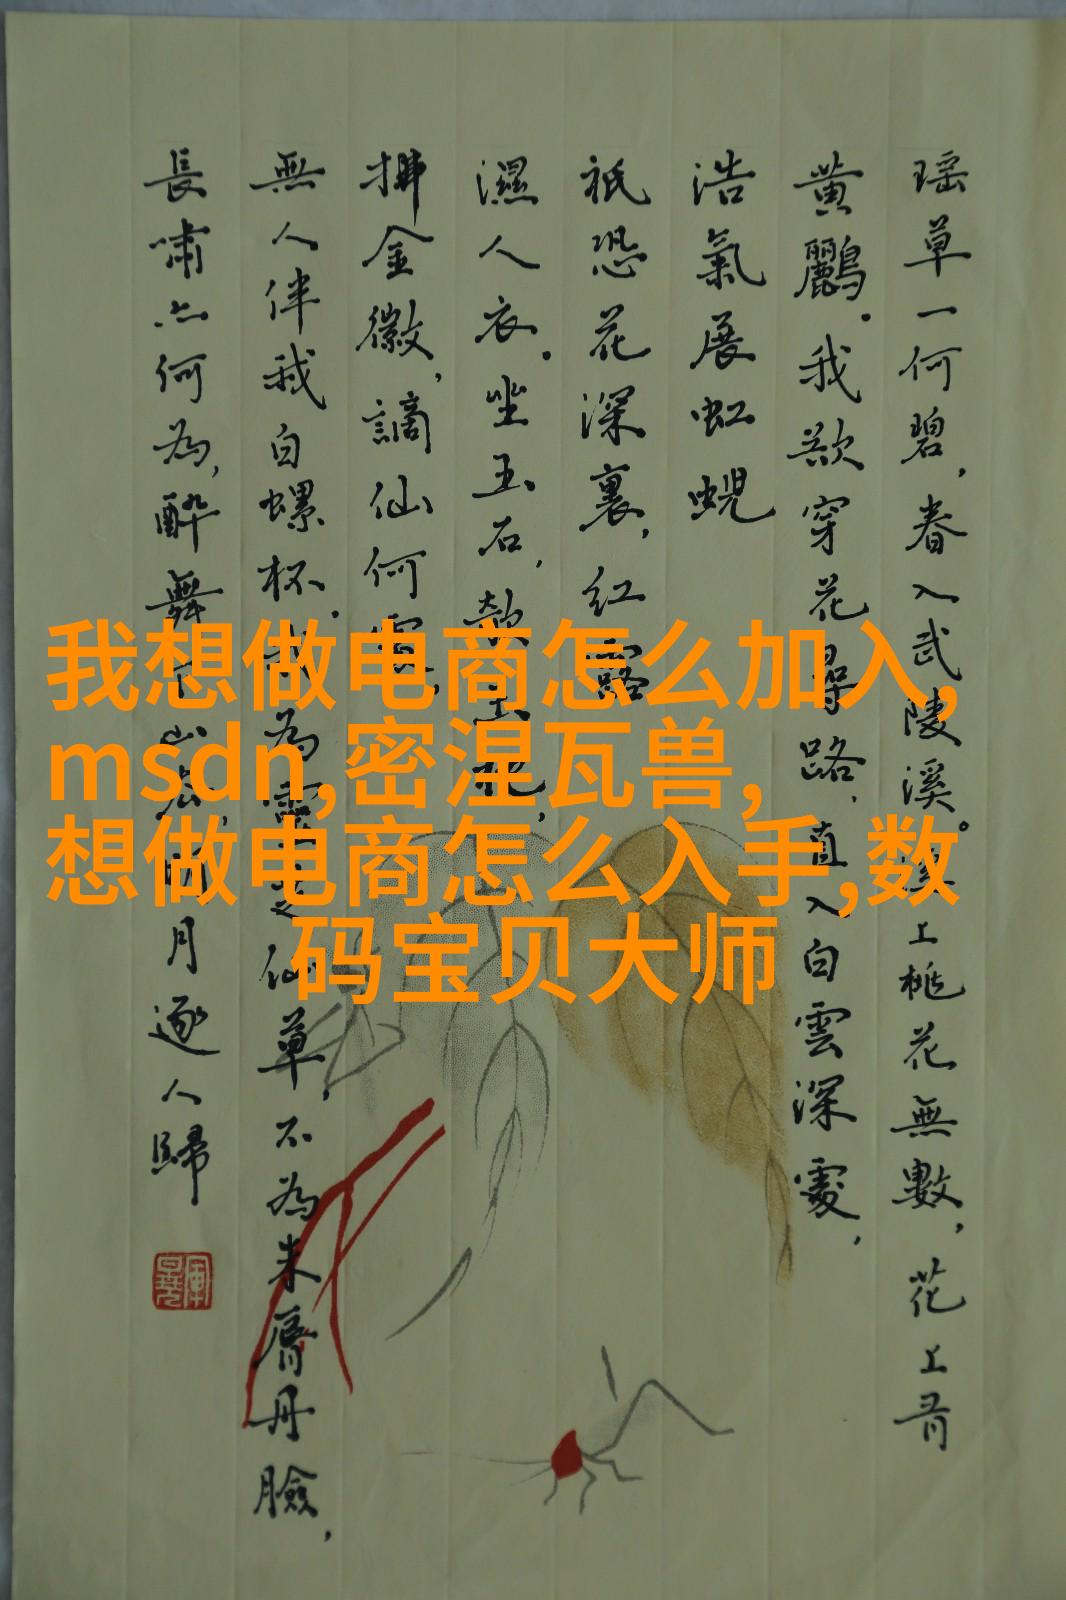 瑶草一何碧，春入武陵溪。溪上桃花無數，花上有
黄鸝。我欲穿花尋路，直入白雲深處，
浩氣展虹蜺
祇恐花深裏，紅露
濕人衣。坐玉石，欹玉枕，
拂金徽，謫仙何處，
無人伴我白螺杯。我為靈芝仙草，不為朱脣丹臉，
長嘯亦何為，醉舞下山去，明月逐人歸
我想做电商怎么加入,
msdn,密涅瓦兽,
想做电商怎么入手,数
码宝贝大师